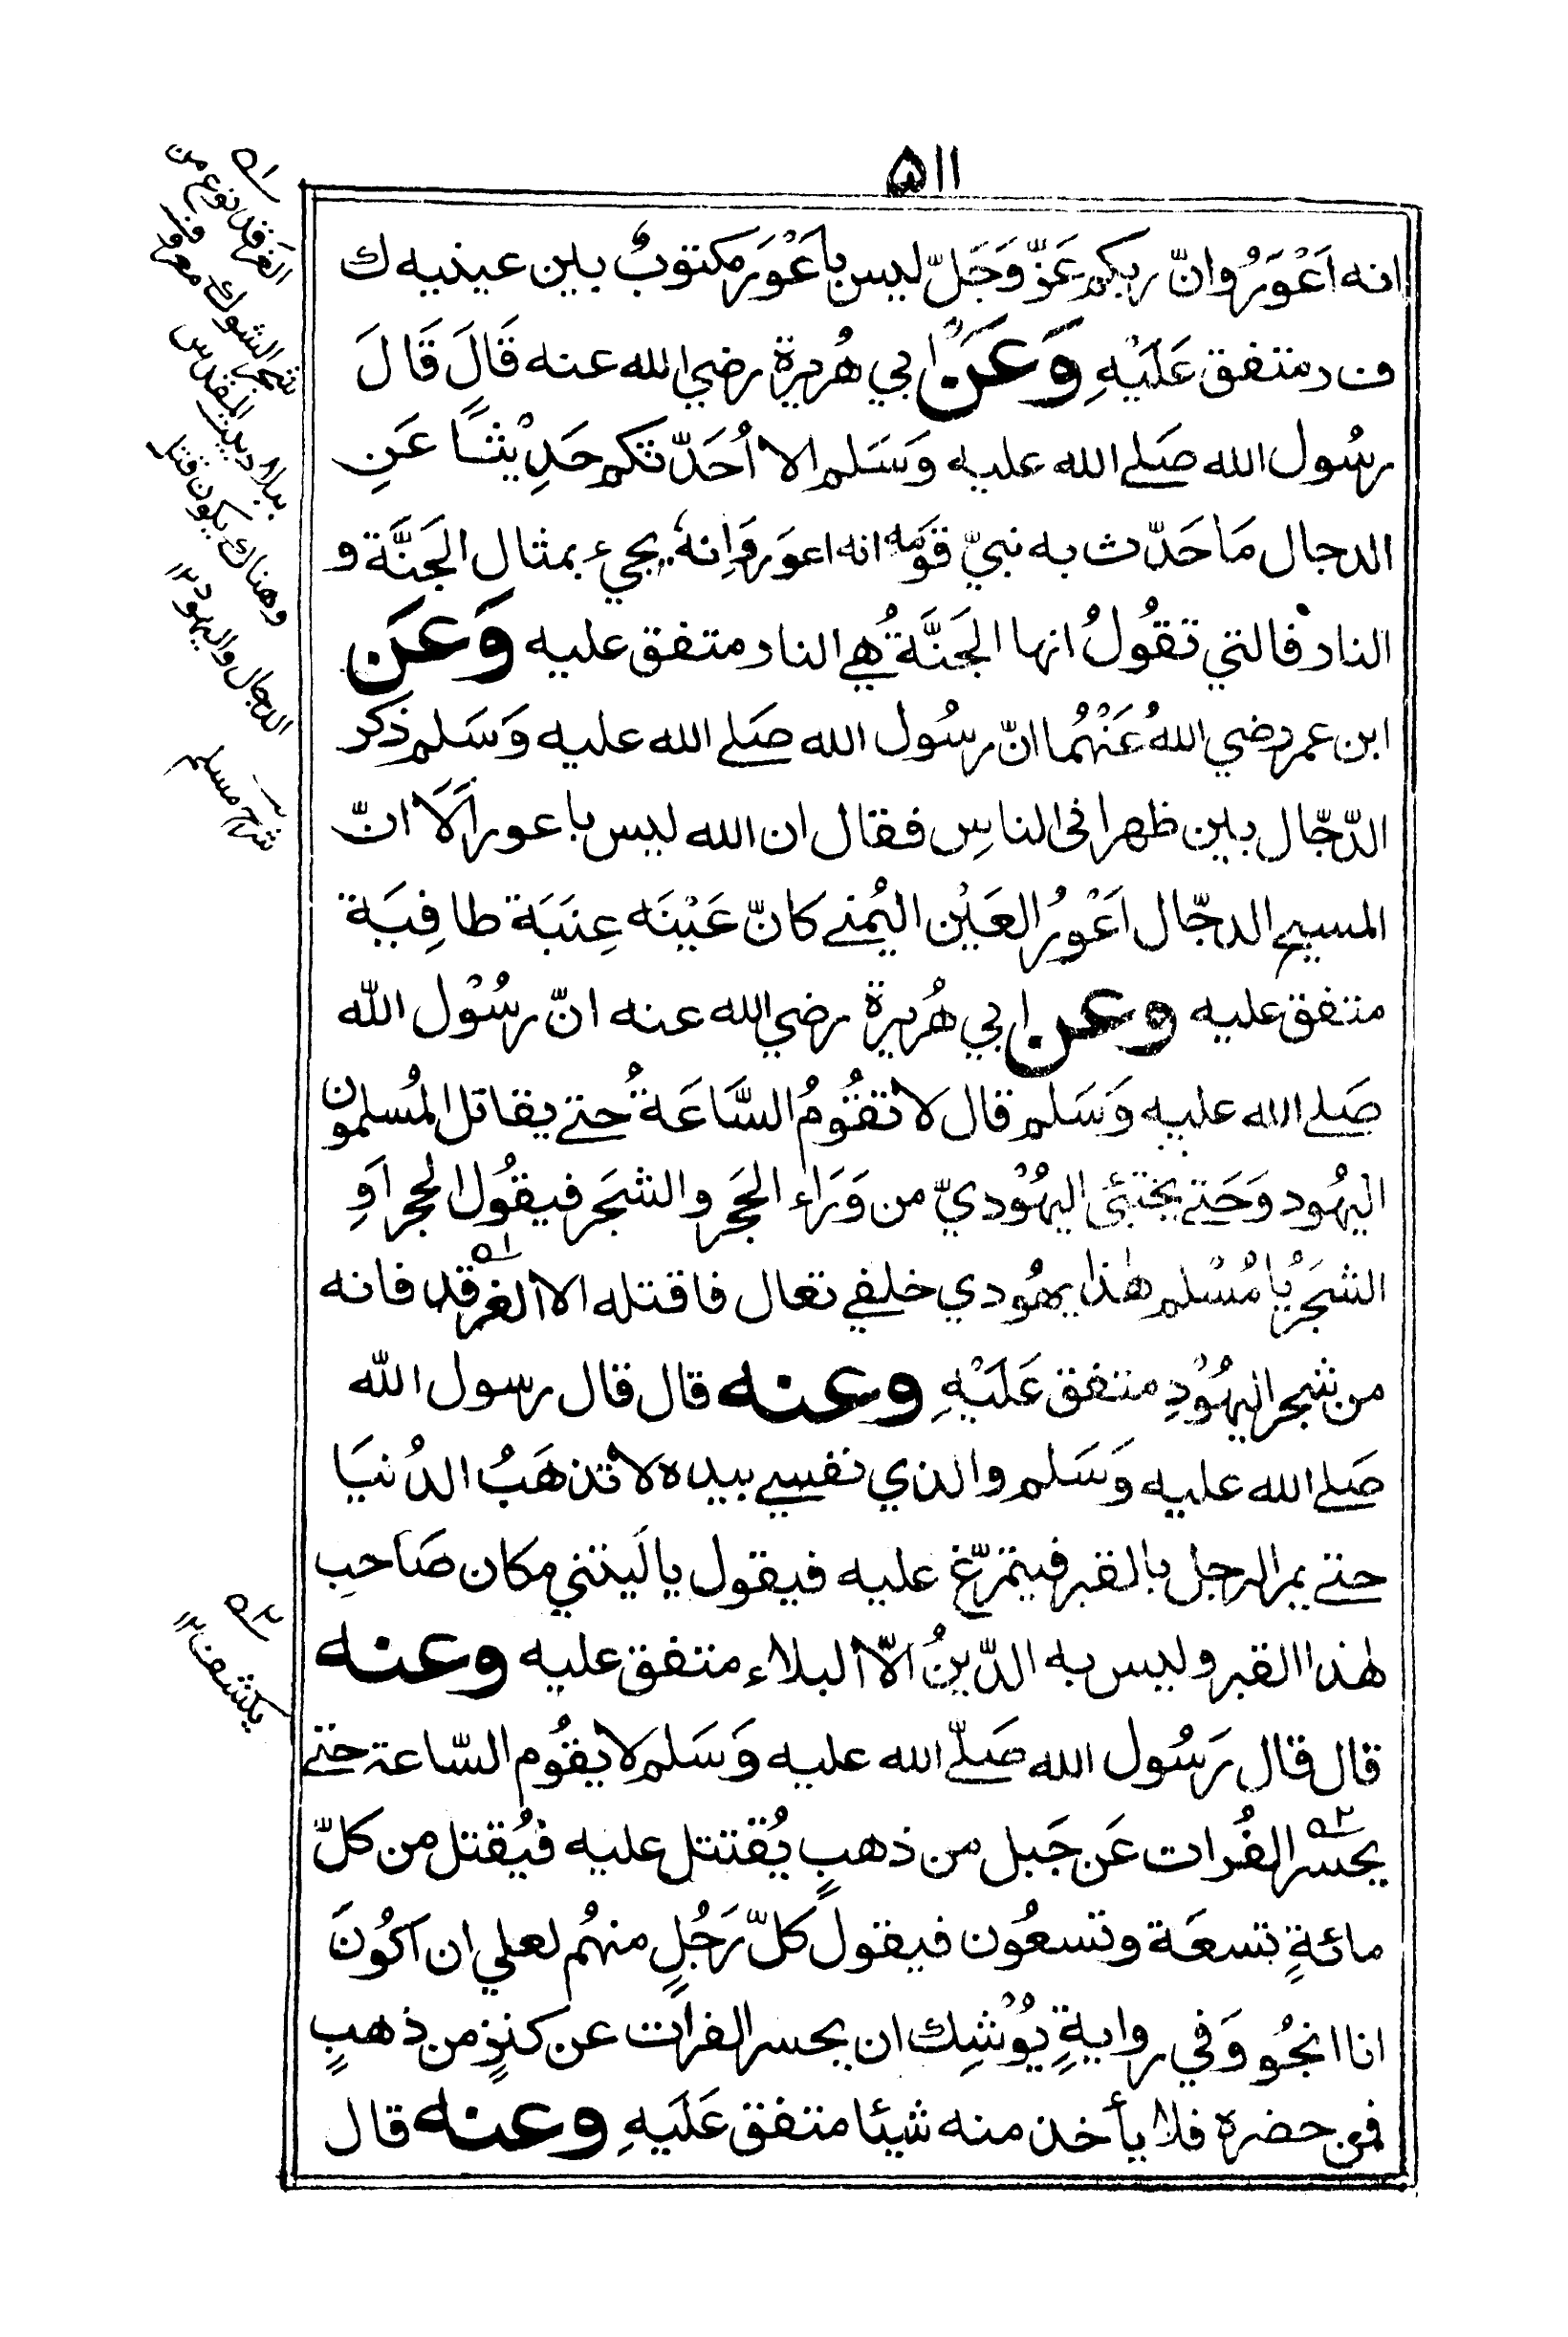 ۵۱۱
انه اَعْوَرُ وانّ ربكم عَزّ وَجَلّ ليس باَعْوَر مكتوبٌ بين عينيه ك
ف ر متفق عَلَيْهِ وَعَنْ ابي هُريرة رضي الله عنه قَالَ قَالَ
رسُول الله صَلى الله عليه وَسَلم الا اُحَدّثكم حَدِيْثًا عَنِ
الدجال مَا حَدّث به نبيّ قَوْمَه انه اعوَر وَاِنهٗ يجيء بمثال الجَنَّة و
النار فالتي تقُولُ انها الجَنَّةُ هي النار متفق عليه وَعَن
ابن عمر رضي اللهُ عَنْهُما انّ رسُول الله صَلى الله عليه وَسَلم ذكر
الدّجّال بين ظهراني الناسِ فقال ان الله ليس باعور اَلَا انّ
المسيح الدجّال اَعْوَرُ العَيْن اليُمنى كانّ عَيْنَه عِنَبَة طافِيَة
متفق عليه وعن ابي هُريرة رضي الله عنه انّ رسُوْل الله
صَلى الله عليه وَسَلم قال لا تقُومُ السَّاعَةُ حتى يقاتل المُسلمون
اليهُود وَحَتى يختبئ اليهُوْديّ من وَرَاء الحَجَر والشجَر فيقُول الحجر اَوِ
الشجَرُ يا مُسْلم هٰذا يهُودي خلفي تعال فاقتله الا الغرقد ۱؎ فانه
من شجر اليهُوْدِ متفق عَلَيْهِ وعنه قال قال رسول الله
صَلى الله عليه وَسَلم والذي نفسي بيده لا تذهَبُ الدُنيَا
حتى يمر الرجل بالقبر فيتمرّغ عليه فيقول يا لَيتني مكان صَاحب
هٰذا القبر وليس به الدّينُ الّا البلاء متفق عليه وعنه
قال قال رَسُول الله صَلّى الله عليه وَسَلم لا يقُوم السّاعة حتى
يحسر ۲؎ الفُرات عَن جَبل من ذهبٍ يُقتتل عليه فيُقتل من كلّ
مائةٍ تسعَة وتسعُون فيقول كلّ رَجُلٍ منهُم لعلي ان اَكُونَ
انا انجُو وَفي روايةٍ يُوْشِك ان يحسر الفرات عن كنزٍ من ذهبٍ
فمن حضره فلا يأخذ منه شيئا متفق عَلَيهِ وعنه قال
۱؎
الغَرقد نوع من
شجر الشوك معروف
ببلاد بيت المقدس
وهناك يكون قتل
الدجال واليهود ۱۲
شرح مسلم
۲؎
يكشف ۱۲